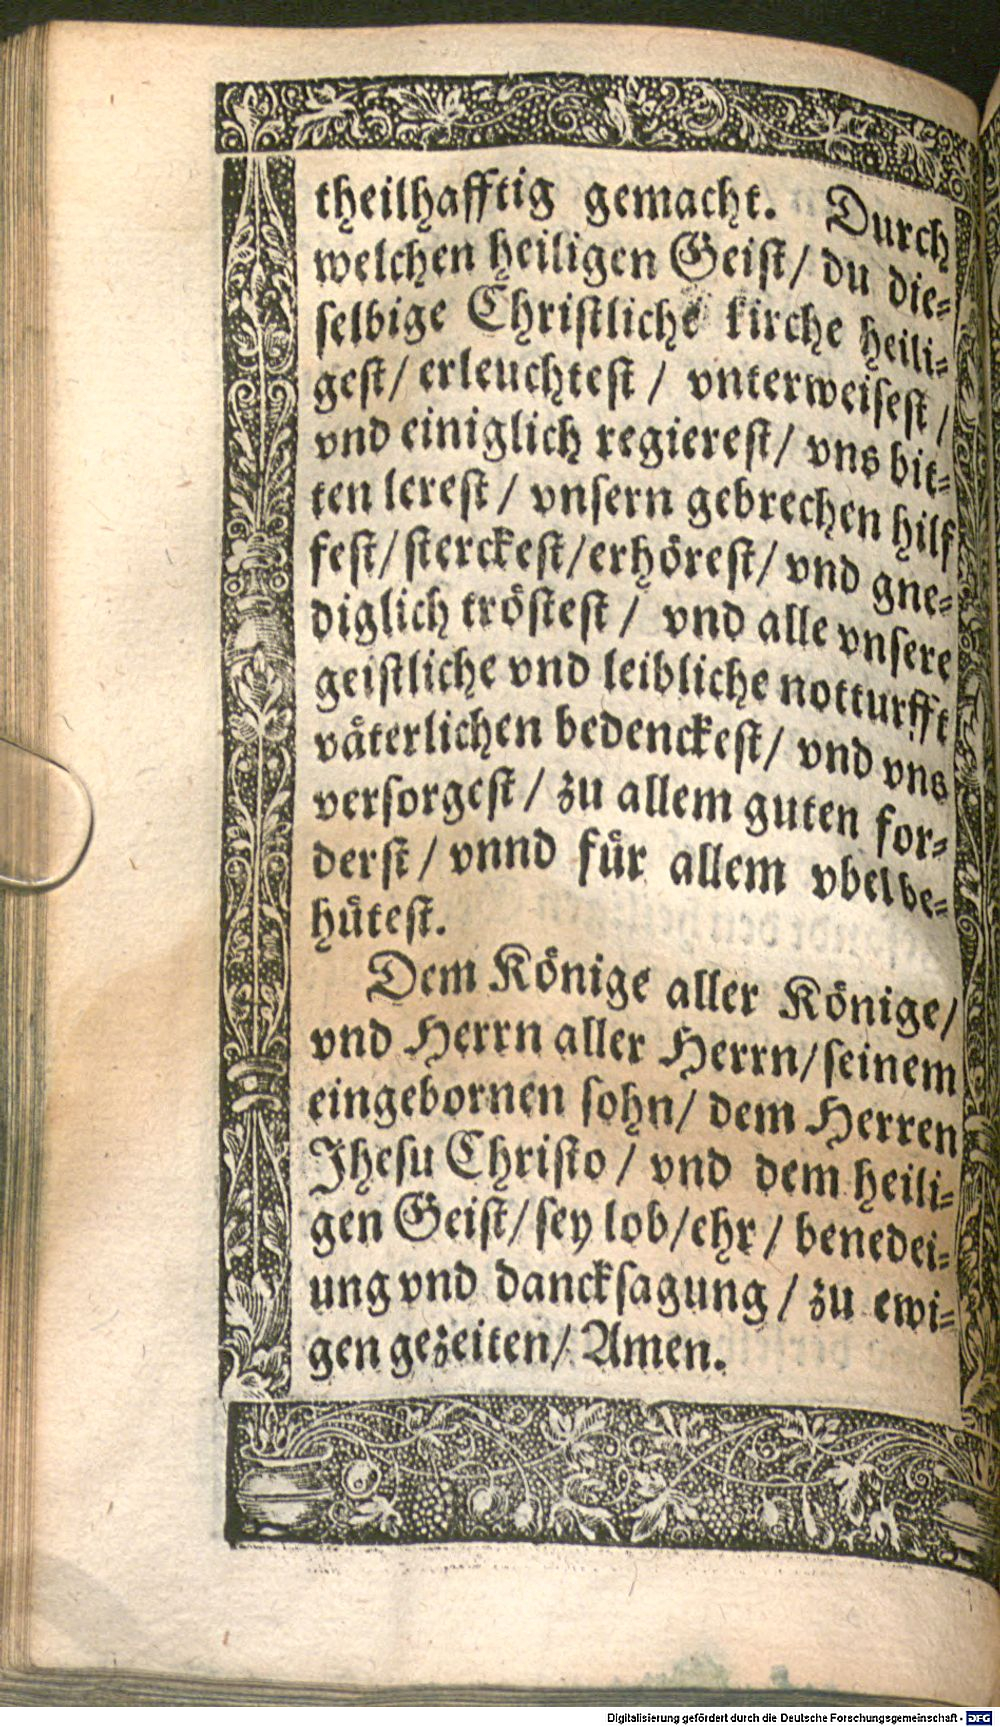 theilhafftig gemacht. Durch
welchen heiligen Geist/ du die-
selbige Christliche kirche heili-
gest/ erleuchtest / vnterweisest /
vnd einiglich regierest/ vns bit-
ten lerest / vnsern gebrechen hilf
fest/ sterckest/ erhörest/ vnd gne-
diglich tröstest / vnd alle vnsere
geistliche vnd leibliche notturfft
väterlichen bedenckest/ vnd vns
versorgest / zu allem guten for-
derst / vnnd für allem vbel be-
hütest.
Dem Könige aller Könige/
vnd Herrn aller Herrn/ seinem
eingebornen sohn/ dem Herren
Jhesu Christo / vnd dem heili-
gen Geist/ sey lob/ ehr / benedei-
ung vnd dancksagung / zu ewi-
gen gezeiten/ Amen.
Digitalisierung gefördert durch die Deutsche Forschungsgemeinschaft - DFG